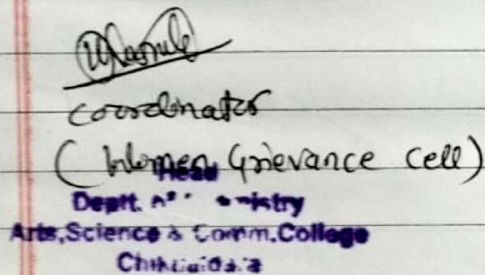 coordinator
(Women Grievance cell)
Head
Deptt. of Chemistry
Arts,Science & Comm.College